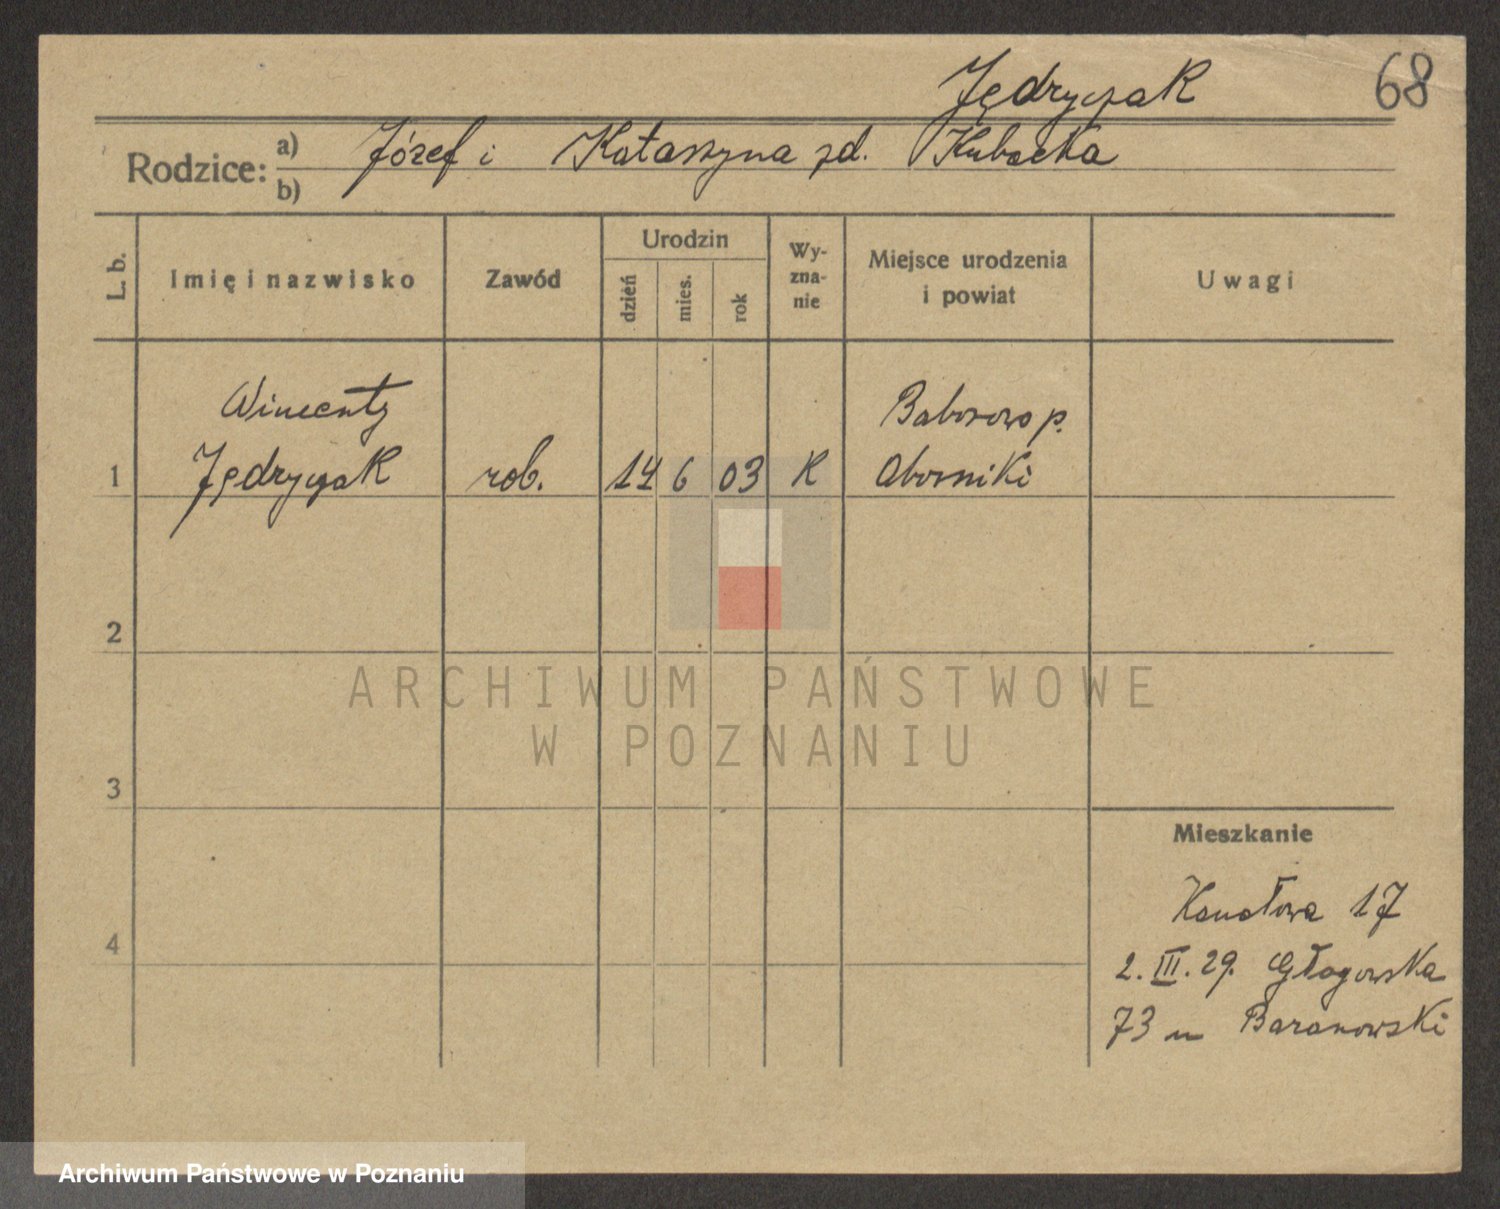 Jędryczak
68
Rodzice: a) Józef i Katarzyna zd. Kubacka
b)
L. b. Imię i nazwisko Zawód Urodzin dzień mies. rok Wyznanie Miejsce urodzenia i powiat Uwagi
Wincenty Baborowo p.
1 Jędryczak rob. 14 6 03 K Oborniki
2
ARCHIWUM PAŃSTWOWE
W POZNANIU
3
Mieszkanie
Kanałowa 17
4
2. III. 29. Głogowska
73 u Baranowski
Archiwum Państwowe w Poznaniu